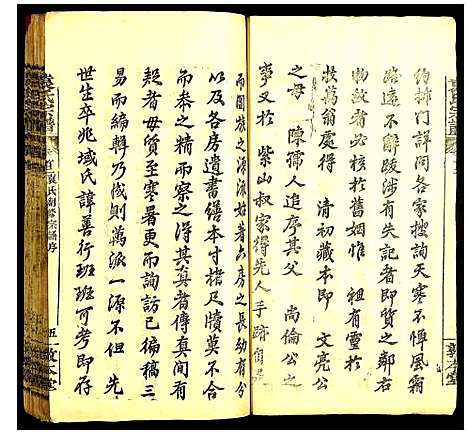 約排門詳問各家搜詢天寒不憚風霜
路遠不辭跋涉有失記者即質之鄰右
物故者必核於舊姻惟 祖有靈於
牧萬翁處得 清初藏本即 文亮公
之母 陳孺人追序其父 尚倫公之
事又於 紫山叔家得先人手跡
而閤族之源流始著 房之長幼有分
以及各房遺書繕本寸楮片牘莫不合
而奉之精而察之得其真者傳真間有
疑者毋質至寒暑更而詢訪已徧稿三
易而編輯乃成則萬派一源不但 先
世生卒兆域氏諱善行班班可考即存
袁氏宗譜
卷首
袁氏 修宗譜序
五
敦本堂